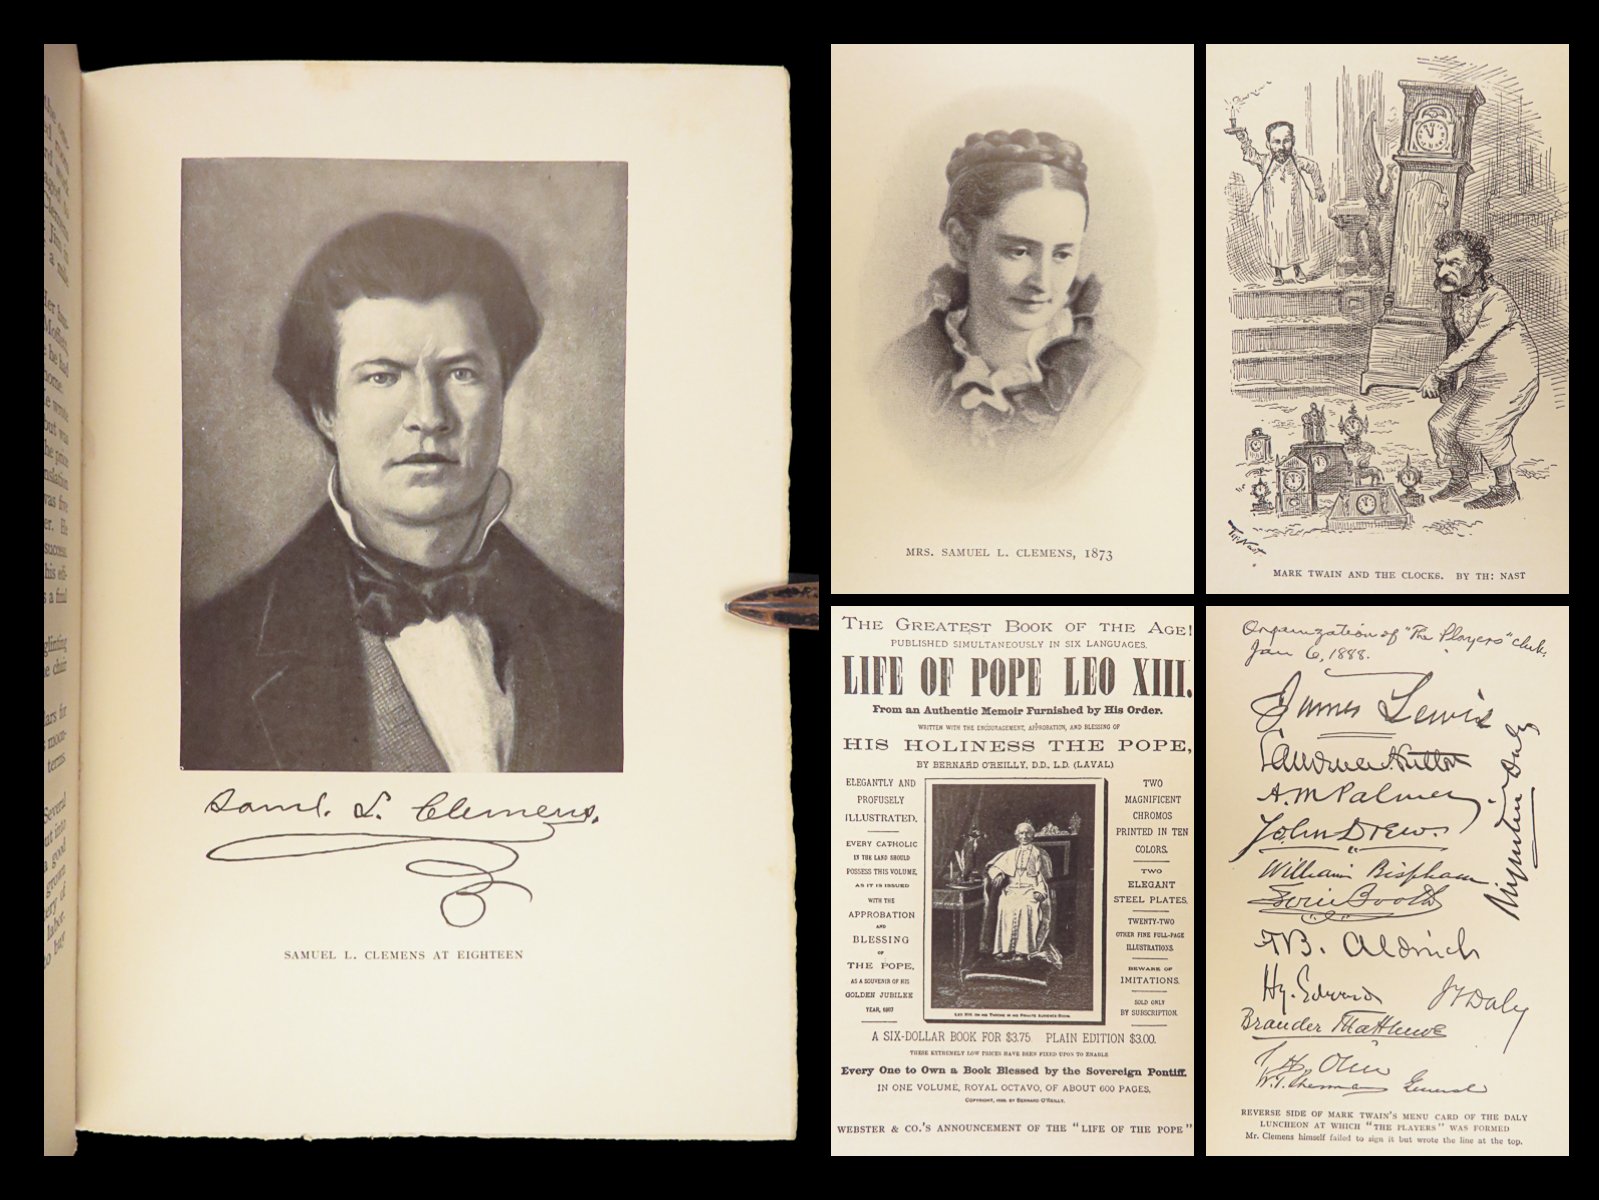 Saml. L. Clemens.
SAMUEL L. CLEMENS AT EIGHTEEN
MRS. SAMUEL L. CLEMENS, 1873
Th: Nast
MARK TWAIN AND THE CLOCKS. BY TH: NAST
THE GREATEST BOOK OF THE AGE!
PUBLISHED SIMULTANEOUSLY IN SIX LANGUAGES.
LIFE OF POPE LEO XIII.
From an Authentic Memoir Furnished by His Order.
WRITTEN WITH THE ENCOURAGEMENT, APPROBATION, AND BLESSING OF
HIS HOLINESS THE POPE,
BY BERNARD O'REILLY, D.D., L.D. (LAVAL)
ELEGANTLY AND
PROFUSELY
ILLUSTRATED.
EVERY CATHOLIC
IN THE LAND SHOULD
POSSESS THIS VOLUME,
AS IT IS ISSUED
WITH THE
APPROBATION
AND
BLESSING
OF
THE POPE,
AS A SOUVENIR OF HIS
GOLDEN JUBILEE
YEAR, 1887
LEO XIII. ON HIS THRONE IN HIS PRIVATE AUDIENCE ROOM.
TWO
MAGNIFICENT
CHROMOS
PRINTED IN TEN
COLORS.
TWO
ELEGANT
STEEL PLATES.
TWENTY-TWO
OTHER FINE FULL-PAGE
ILLUSTRATIONS.
BEWARE OF
IMITATIONS.
SOLD ONLY
BY SUBSCRIPTION.
A SIX-DOLLAR BOOK FOR $3.75. PLAIN EDITION $3.00.
THESE EXTREMELY LOW PRICES HAVE BEEN FIXED UPON TO ENABLE
Every One to Own a Book Blessed by the Sovereign Pontiff.
IN ONE VOLUME, ROYAL OCTAVO, OF ABOUT 600 PAGES.
COPYRIGHT, 1886. BY BERNARD O'REILLY.
WEBSTER & CO.'S ANNOUNCEMENT OF THE "LIFE OF THE POPE"
Organization of "The Players" club.
Jan 6, 1888.
James Lewis
Laurence Hutton
A. M. Palmer
John Drew.
William Bispham
Edwin Booth
Augustin Daly
T. B. Aldrich
Hy. Edwards
J F Daly
Brander Matthews
W. T. Sherman General
REVERSE SIDE OF MARK TWAIN'S MENU CARD OF THE DALY
LUNCHEON AT WHICH "THE PLAYERS" WAS FORMED
Mr. Clemens himself failed to sign it but wrote the line at the top.